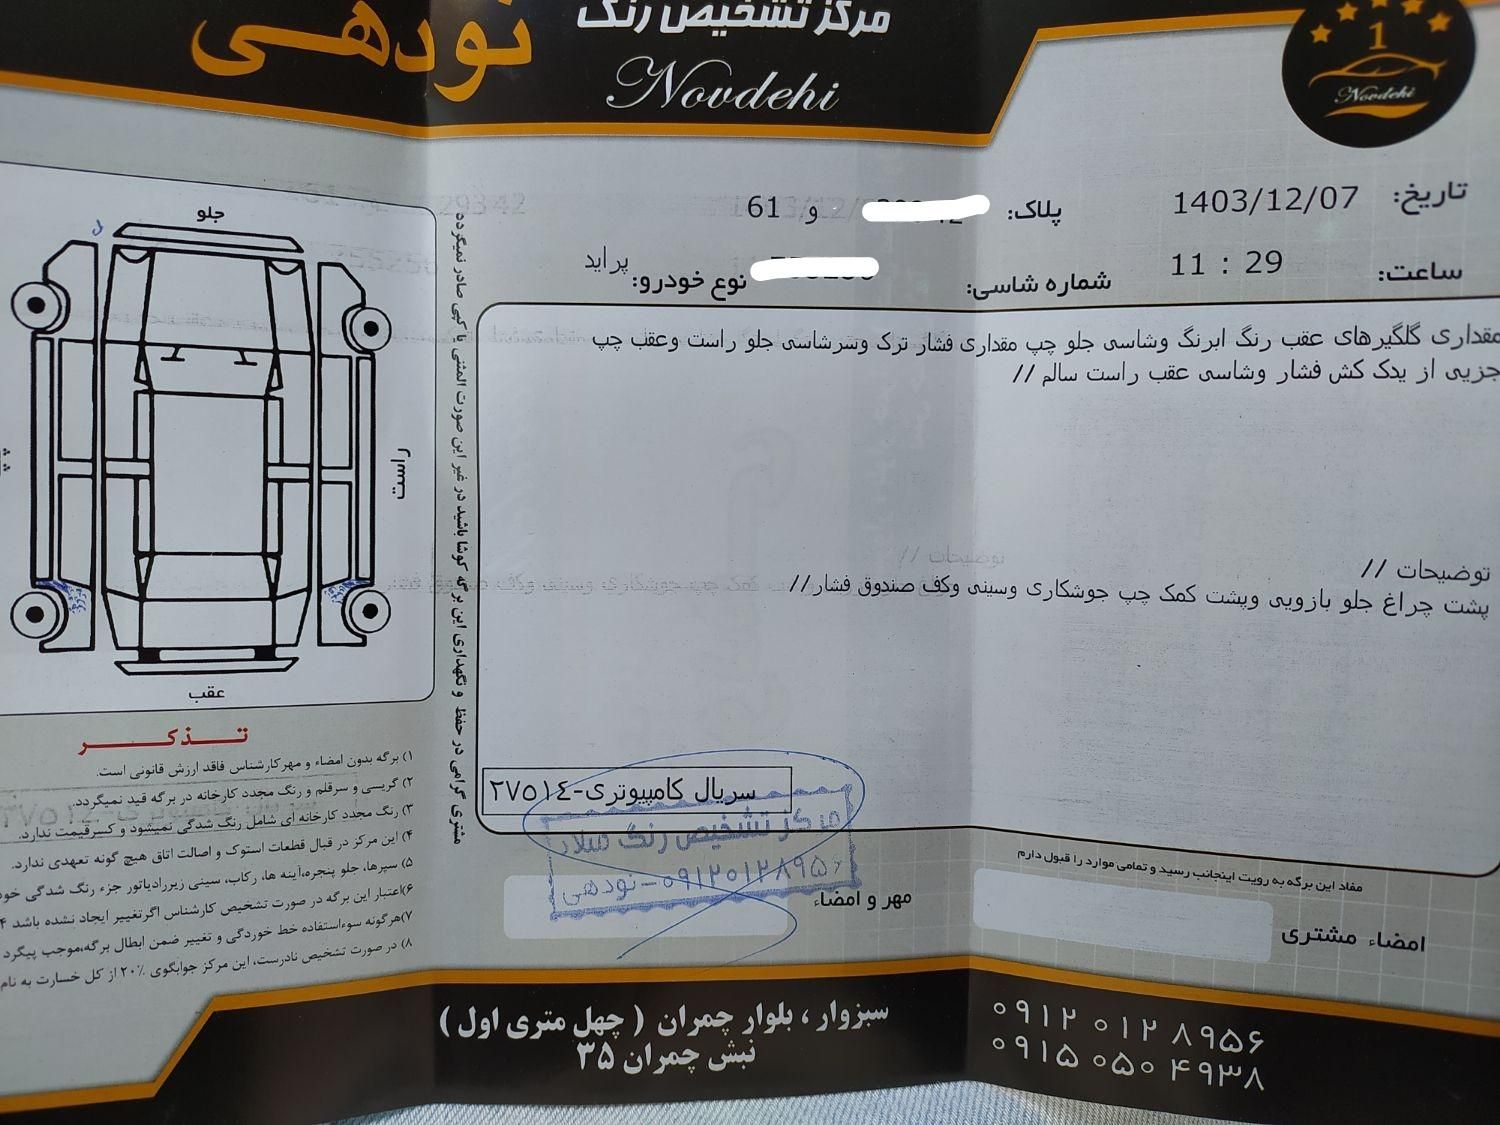 مرکز تشخیص رنگ
نودهی
Novdehi
1
Novdehi
تاریخ: 1403/12/07
پلاک: و 61
ساعت: 11 : 29
شماره شاسی:
نوع خودرو: پراید
مقداری گلگیرهای عقب رنگ ابرنگ وشاسی جلو چپ مقداری فشار ترک وسرشاسی جلو راست وعقب چپ
جزیی از یدک کش فشار وشاسی عقب راست سالم //
توضیحات //
پشت چراغ جلو بازویی وپشت کمک چپ جوشکاری وسینی وکف صندوق فشار//
سریال کامپیوتری-۲۷۵۱٤
مرکز تشخیص رنگ میلاد
۰۹۱۲۰۱۲۸۹۵۶-نودهی
مهر و امضاء
مفاد این برگه به رویت اینجانب رسید و تمامی موارد را قبول دارم
امضاء مشتری
مشتری گرامی در حفظ و نگهداری این برگه کوشا باشید در غیر این صورت المثنی یا کپی صادر نمیگردد
جلو
راست
عقب
تذکر
۱) برگه بدون امضاء و مهرکارشناس فاقد ارزش قانونی است.
۲) گریسی و سرقلم و رنگ مجدد کارخانه در برگه قید نمیگردد.
۳) رنگ مجدد کارخانه ای شامل رنگ شدگی نمیشود و کسرقیمت ندارد.
۴) این مرکز در قبال قطعات استوک و اصالت اتاق هیچ گونه تعهدی ندارد.
۵) سپرها، جلو پنجره،آینه ها، رکاب، سینی زیررادیاتور جزء رنگ شدگی
۶)اعتبار این برگه در صورت تشخیص کارشناس اگرتغییر ایجاد نشده باشد
۷)هرگونه سوءاستفاده خط خوردگی و تغییر ضمن ابطال برگه،موجب پیگرد
۸) در صورت تشخیص نادرست، این مرکز جوابگوی ۲۰٪ از کل خسارت به نام
سبزوار ، بلوار چمران ( چهل متری اول )
نبش چمران ۳۵
۰۹۱۲ ۰۱۲ ۸۹۵۶
۰۹۱۵ ۰۵۰ ۴۹۳۸